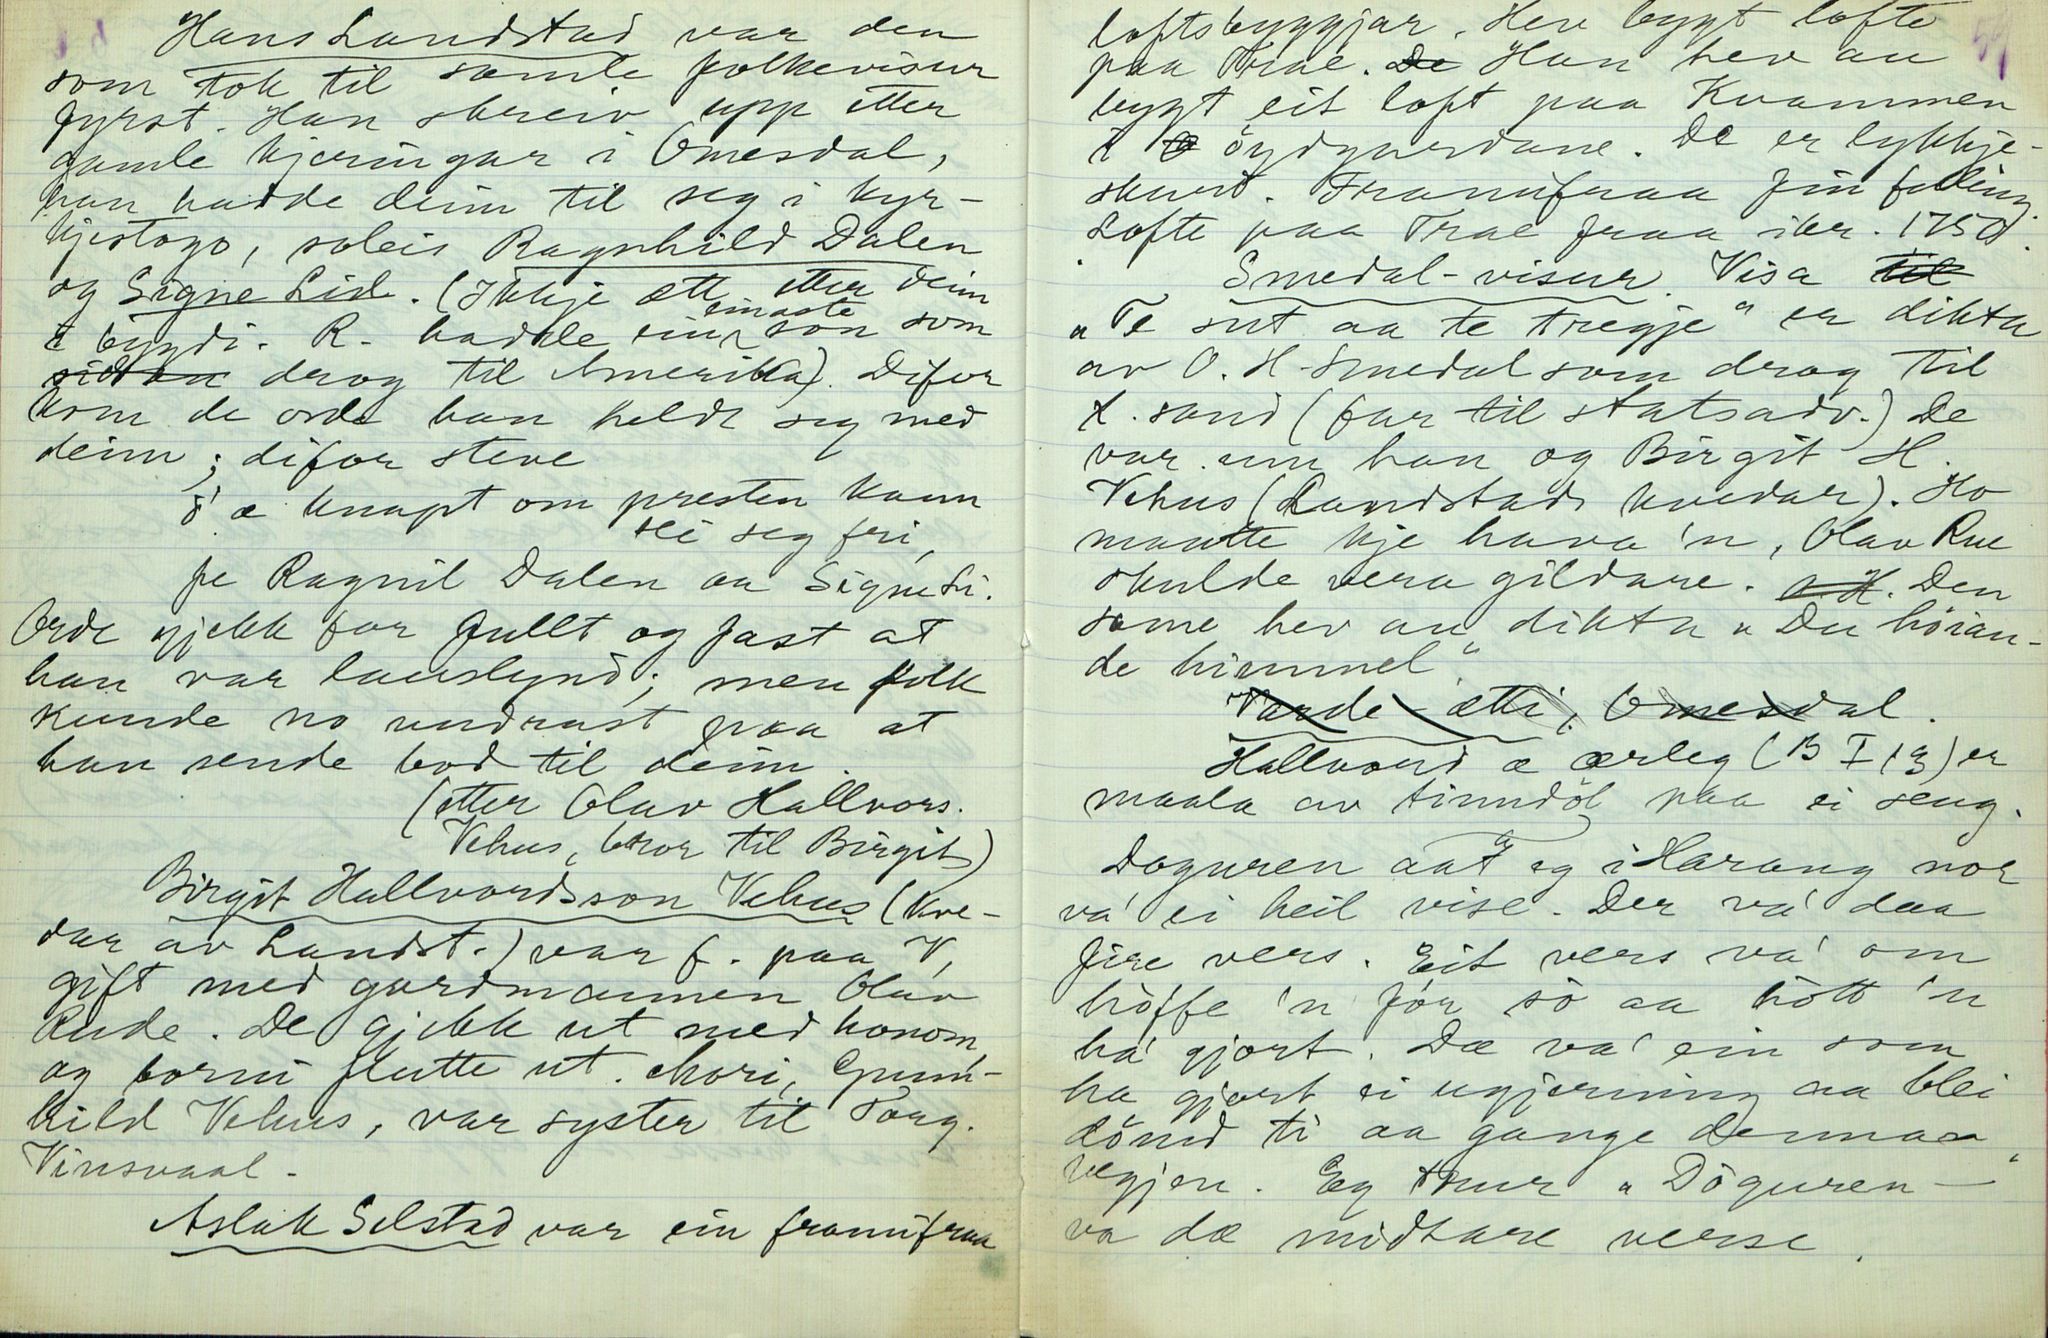 Hans Landstad var den
som tok til samle folkevisur
fyrst. Han skreiv upp etter
gamle kjeringar i Omesdal,
han hadde deim til seg i kyr-
kjestogo, soleis Ragnhild Dalen
og Signe Lid. (Ikkje ætt etter deim
i bygdi. R. hadde ein einaste son som
sidan drog til Amerika). Difor
kom de orde han heldt seg med
deim; difor steve
d' æ knapt om presten kann
sei seg fri,
fe Ragnil Dalen aa Signe Li.
Orde gjekk for fullt og fast at
han var lauslynd; men folk
kunde no undrast paa at
han sende bod til deim.
(etter Olav Hallvors.
Vehus, bror til Birgit)
Birgit Hallvordsson Vehus (kve-
dar av Landst.) var f. paa V,
gift med gardmannen Olav
Rude. De gjekk ut med honom,
og borni flutte ut. Mori, Gunn-
hild Vehus, var syster til Targ.
Vinsvaal.
Aslak Selstad var ein framifraa
loftsbyggjar. Hev bygt lofte
paa Trae. De Han hev au
bygt eit loft paa Kvammen
i öydgardane. De er lykkje-
skurd. Framifraa fin felling.
Lofte paa Trae fraa ikr. 1750.
Smedal-visur. Visa til
„Te sut aa te tregje" er dikta
av O. H. Smedal som drog til
K. sand (far til statsadv.) De
var um han og Birgit H.
Vehus (Landstads kvedar). Ho
maatte kje hava 'n, Olav Rue
skulde vera gildare. O. H. Den
same hev au dikta „Du höian-
de himmel"
Varde-ætti, Omesdal.
Hallvord æ ærleg (B I 13) er
maala av tinndöl paa ei seng.
Doguren aat eg i Harang nor
va' ei heil vise. Der va' daa
fire vers. Eit vers va' om
höffe 'n fór so aa hött 'n
ha' gjort. Dæ va' ein som
ha gjort ei ugjerning aa blei
dömd ti aa gange denna
vegjen. Eg trur „Döguren —"
va dæ midtare verse.